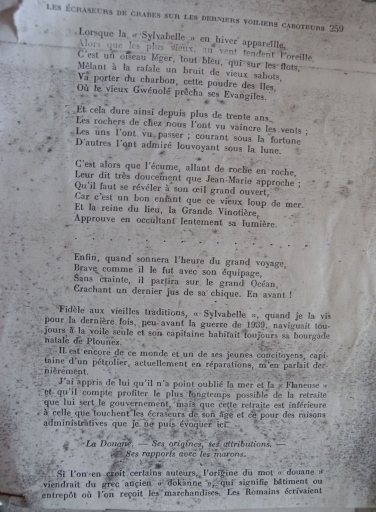 LES ÉCRASEURS DE CRABES SUR LES DERNIERS VOILIERS CABOTEURS 259
Lorsque la « Sylvabelle » en hiver appareille,
Alors que les plus vieux, au vent tendent l'oreille,
C'est un oiseau léger, tout bleu, qui sur les flots,
Mêlant à la rafale un bruit de vieux sabots,
Va porter du charbon, cette poudre des Iles,
Où le vieux Gwénolé prêcha ses Evangiles.
Et cela dure ainsi depuis plus de trente ans,
Les rochers de chez nous l'ont vu vaincre les vents ;
Les uns l'ont vu passer ; courant sous la fortune
D'autres l'ont admiré louvoyant sous la lune.
C'est alors que l'écume, allant de roche en roche,
Leur dit très doucement que Jean-Marie approche ;
Qu'il faut se révéler à son œil grand ouvert,
Car c'est un bon enfant que ce vieux loup de mer.
Et la reine du lieu, la Grande Vinotière,
Approuve en occultant lentement sa lumière.
. . . . . . . . . . . . . . . . . . . .
Enfin, quand sonnera l'heure du grand voyage,
Brave comme il le fut avec son équipage,
Sans crainte, il partira sur le grand Océan,
Crachant un dernier jus de sa chique. En avant !
Fidèle aux vieilles traditions, « Sylvabelle », quand je la vis
pour la dernière fois, peu avant la guerre de 1939, naviguait tou-
jours à la voile seule et son capitaine habitait toujours sa bourgade
natale de Plounez.
Il est encore de ce monde et un de ses jeunes concitoyens, capi-
taine d'un pétrolier, actuellement en réparations, m'en parlait der-
nièrement.
J'ai appris de lui qu'il n'a point oublié la mer et la « Flaneuse »
et qu'il compte profiter le plus longtemps possible de la retraite
que lui sert le gouvernement, mais que cette retraite est inférieure
à celle que touchent les écraseurs de son âge et ce pour des raisons
administratives que je ne puis évoquer ici.
La Douane. — Ses origines, ses attributions. —
Ses rapports avec les marins.
Si l'on en croit certains auteurs, l'origine du mot « douane »
viendrait du grec ancien « dokanne », qui signifie bâtiment ou
entrepôt où l'on reçoit les marchandises. Les Romains écrivaient